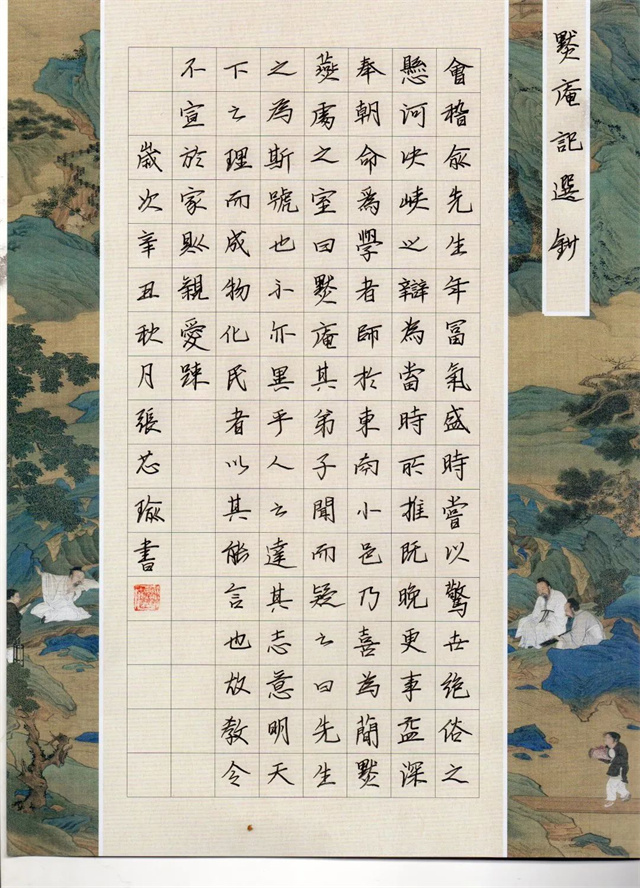 默庵記選鈔
會稽俞先生年冨氣盛時嘗以驚世絶俗之
懸河决峡之辯為當時所推既晚更事益深
奉朝命爲學者師於東南小邑乃喜為簡默
燕處之室曰默庵其弟子聞而疑之曰先生
之為斯號也不亦異乎人之達其志意明天
下之理而成物化民者以其能言也故教令
不宣於家則親愛踈
歲次辛丑秋月張芯瑜書